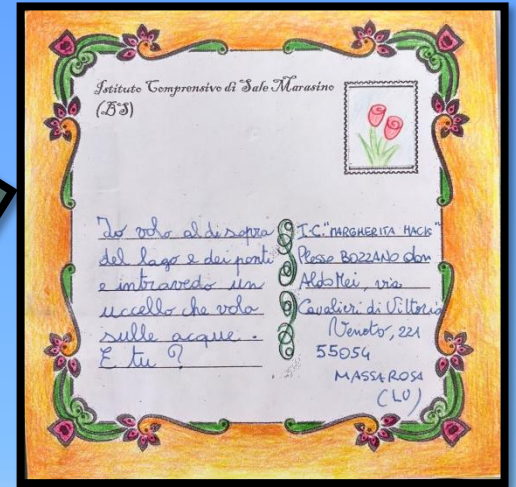 Istituto Comprensivo di Sale Marasino
(BS)
Io volo al di sopra
del lago e dei ponti
e intravedo un
uccello che vola
sulle acque.
E tu?
I.C. "MARGHERITA HACK"
Plesso BOZZANO don
Aldo Mei, via
Cavalieri di Vittorio
Veneto, 221
55054
MASSAROSA
(LU)